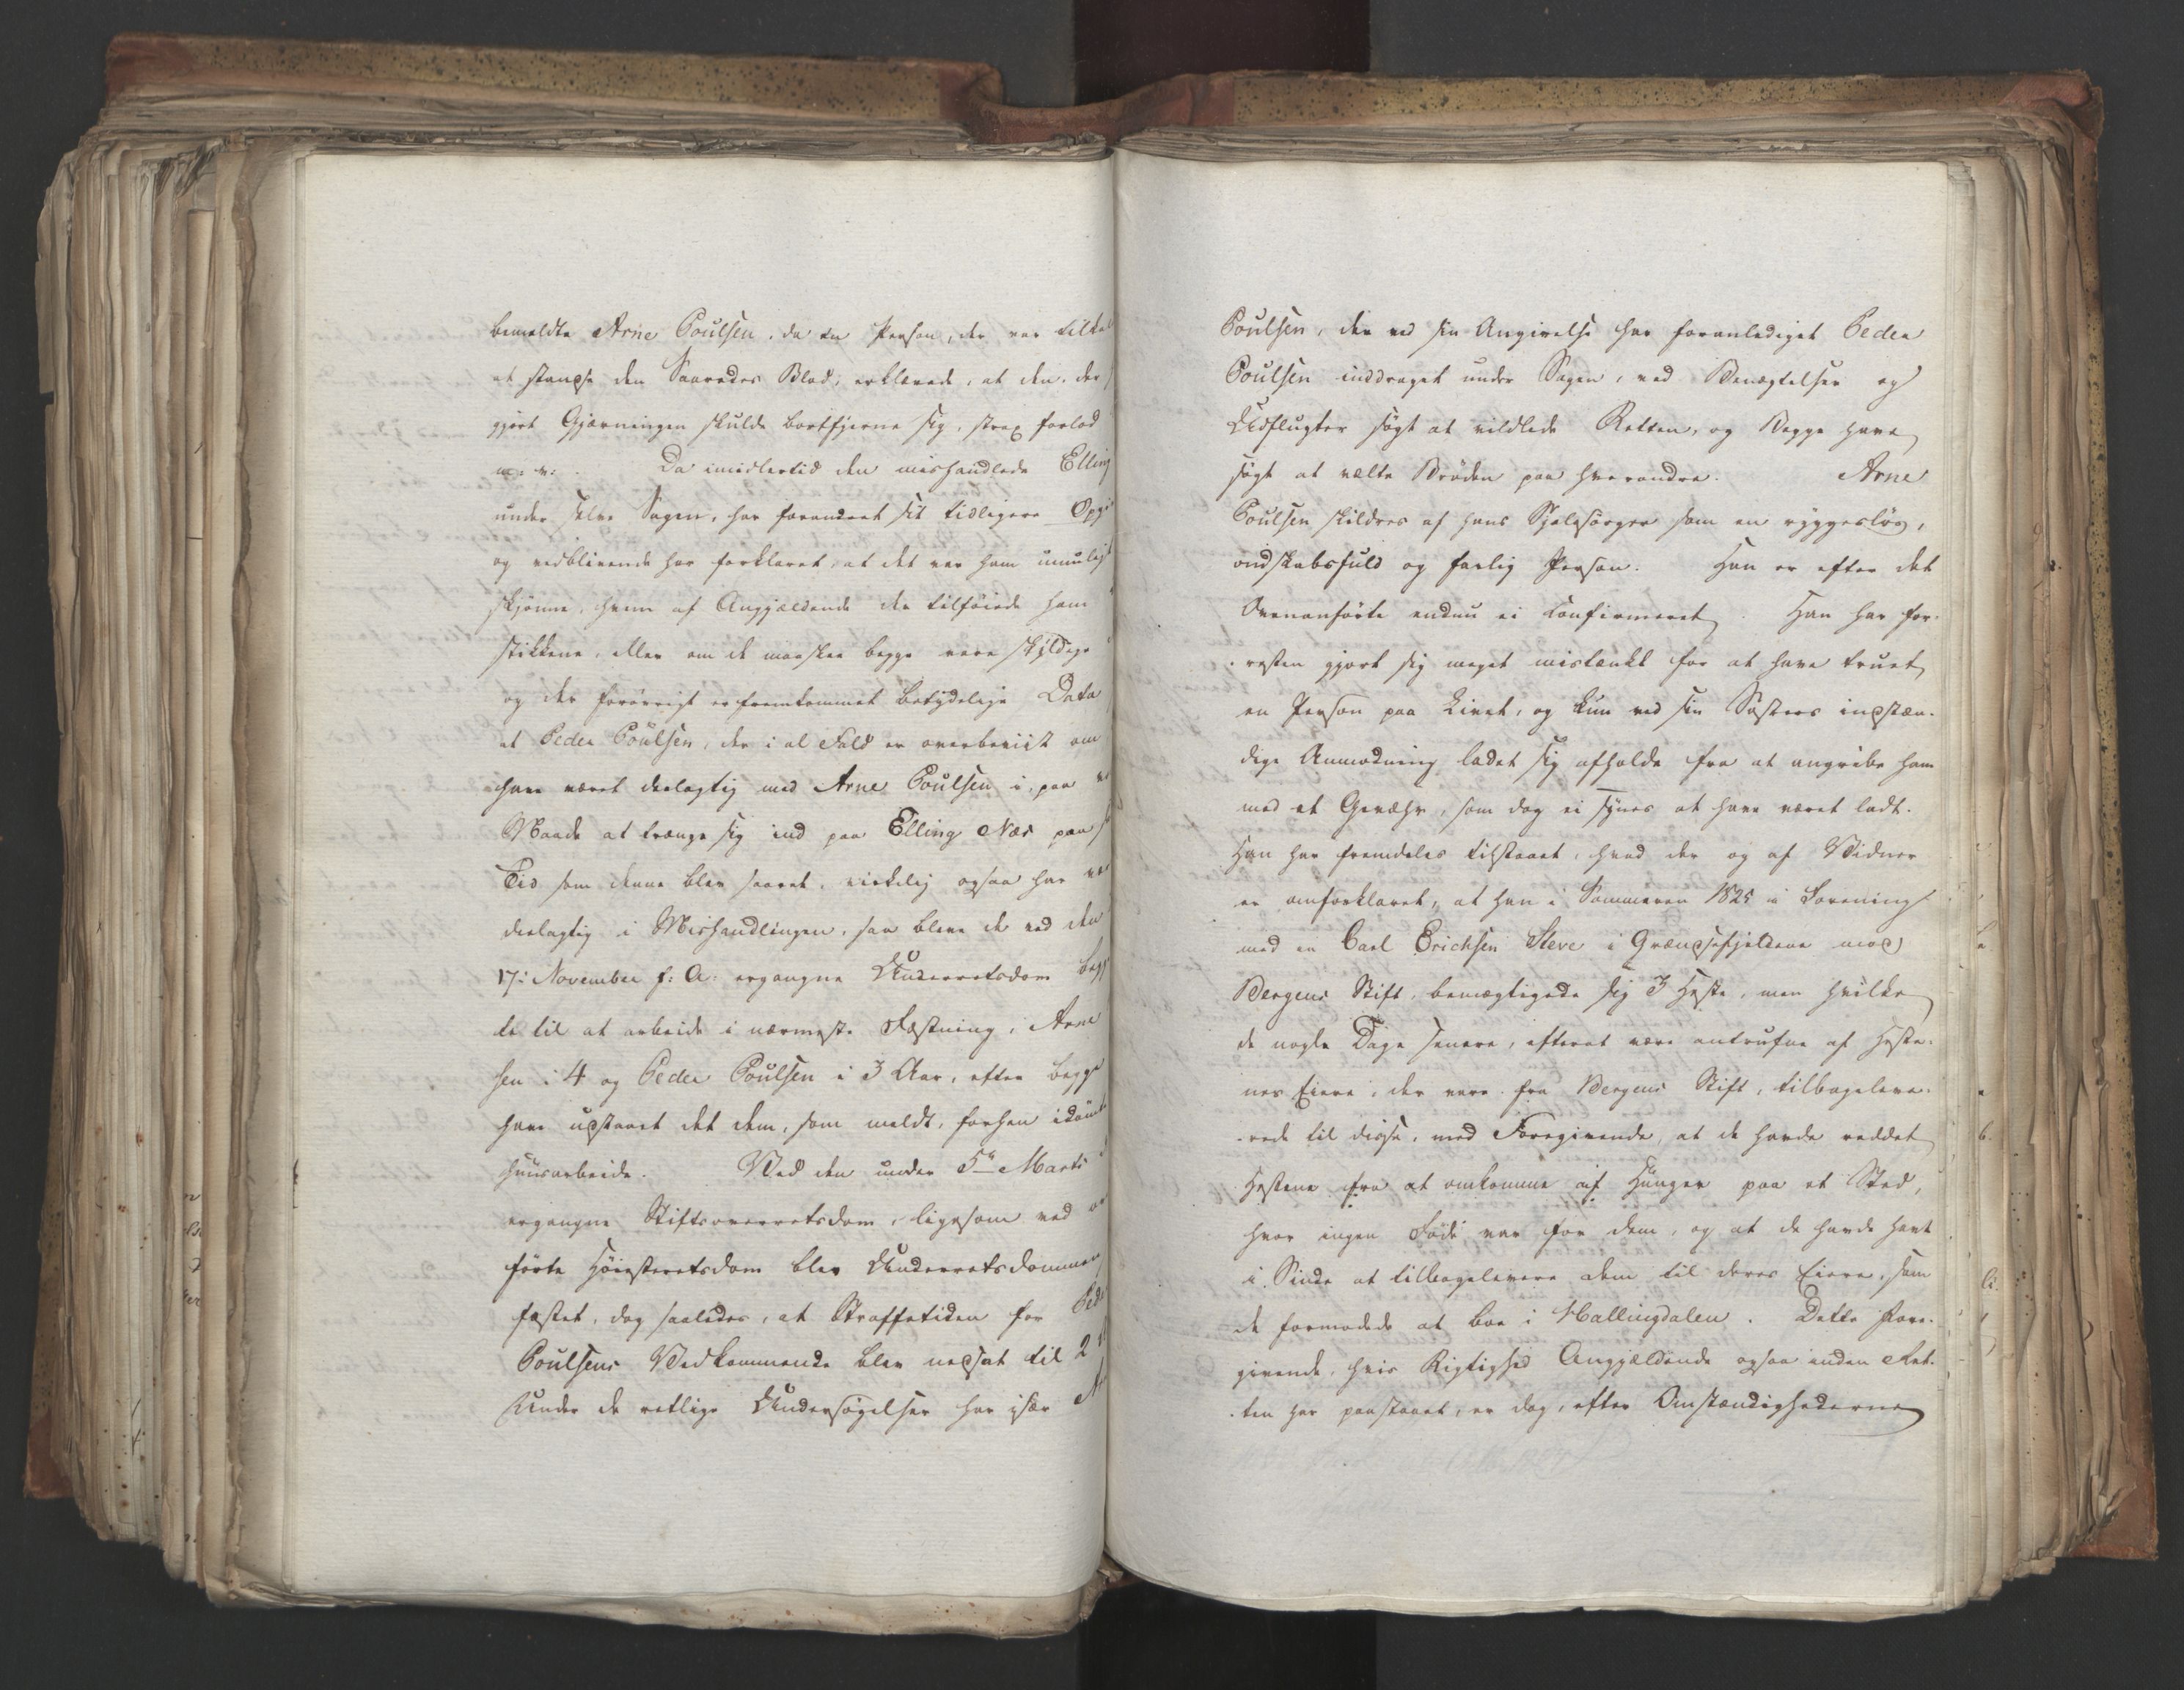 bemeldte Arne Poulsen, da en Person, der var tilkal
at standse den Saaredes Blod, erklærede, at den, der
gjort Gjærningen skulde bortfjerne sig, strax forlod
m: v: . Da imidlertid den mishandlede Elling
under selve Sagen, har forandret sit tidligere Opgi
og vedblivende har forklaret, at det var ham umuligt
skjønne, hvem af Angjældende der tilføiede ham
stikkene, eller om de maaskee begge vare skyldige
og der forøvrigt er fremkommet betydelige Data
at Peder Poulsen, der i al Fald er overbeviist om
have været deelagtig med Arne Poulsen i, paa
Maade at trænge sig ind paa Elling Næs paa
Tid som denne blev saaret, virkelig ogsaa har væ
deelagtig i Mishandlingen, saa bleve de ved den
17: November f: A: ergangne Underretsdom begge
te til at arbeide i nærmeste Fæstning, Arne
sen i 4 og Peder Poulsen i 3 Aar, efter begge
have udstaaet det dem, som meldt, forhen idømte
huusarbeide. Ved den under 5te Marts
ergangne Stiftsoverretsdom, ligesom ved
førte Høiesteretsdom blev Underretsdommen
fæstet, dog saaledes, at Straffetiden for Pede
Poulsens Vedkommende blev nedsat til 2
Under de retlige Undersøgelser har især A
Poulsen, der ved sin Angivelse har foranlediget Peder
Poulsen inddraget under Sagen, ved Benægtelser og
Udflugter søgt at vildlede Retten, og Begge have
søgt at vælte Brøden paa hverandre. Arne
Poulsen skildres af hans Sjelesørger som en ryggesløs,
ondskabsfuld og farlig Person. Han er efter det
Ovenanførte endnu ei Confirmeret. Han har for-
-resten gjort sig meget mistænkt for at have truet
en Person paa Livet, og kun ved sin Søsters indstæn-
dige Anmodning ladet sig afholde fra at angribe ham
med et Gevæhr, som dog ei synes at have været ladt.
Han har fremdeles tilstaaet, hvad der og af Vidner
er omforklaret, at han i Sommeren 1825 i Forening
med en Carl Erichsen Steve i Grændsefjeldene mod
Bergens Stift, bemægtigede sig 3 Heste, men hvilke
de nogle Dage senere, efterat være antrufne af Heste-
nes Eiere, der vare fra Bergens Stift, tilbageleve-
-rede til disse, med Foregivende, at de havde reddet
Hestene fra at omkomme af Hunger paa et Sted,
hvor ingen Føde var for dem, og at de havde havt
i Sinde at tilbagelevere dem til deres Eiere, som
de formodede at boe i Hallingdalen. Dette Fore-
givende, hvis Rigtighed Angjældende ogsaa inden Ret-
-ten har paastaaet, er dog, efter Omstændighederne